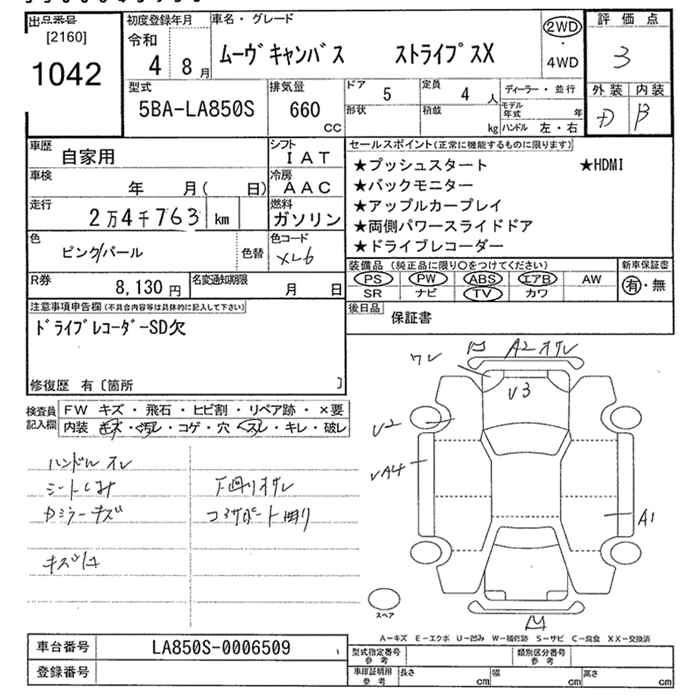 出品番号
[2160]
1042
初度登録年月
令和
4 8月
車名・グレード
ムーヴキャンバス ストライプスX
2WD
・
4WD
評価点
3
外装 内装
D B
型式
5BA-LA850S
排気量
660
CC
ドア
5
定員
4 人
形状
積載
kg
ディーラー・並行
モデル年式 年
ハンドル 左・右
車歴
自家用
シフト
IAT
車検
年 月( 日)
冷房
AAC
走行
2万4千763 km
燃料
ガソリン
色
ピンク/パール
色替
色コード
XL6
R券
8,130円
名変通知期限
月 日
セールスポイント(正常に機能するものに限ります)
★プッシュスタート ★HDMI
★バックモニター
★アップルカープレイ
★両側パワースライドドア
★ドライブレコーダー
装備品(純正品に限り○をつけてください)
PS PW ABS エアB AW
SR ナビ TV カワ
新車保証書
有・無
後日品
保証書
注意事項申告欄(不具合内容等は具体的に記入して下さい)
ドライブレコーダーSD欠
修復歴 有〔箇所 〕
検査員
記入欄
FW キズ・飛石・ヒビ割・リペア跡・×要
内装 キズ・汚れ・コゲ・穴・スレ・キレ・破レ
ハンドル スレ
シートしみ
カミラーキズ
キズ凹
下廻りサビ
コアサポート曲り
ワレ
A2 オサレ
U3
U2
UA4
A1
スペア
A-キズ E-エクボ U-凹み W-補修跡 S-サビ C-腐食 XX-交換済
車台番号
LA850S-0006509
登録番号
型式指定番号
参考
類別区分番号
参考
車庫証明用
参考
長さ cm
幅 cm
高さ cm